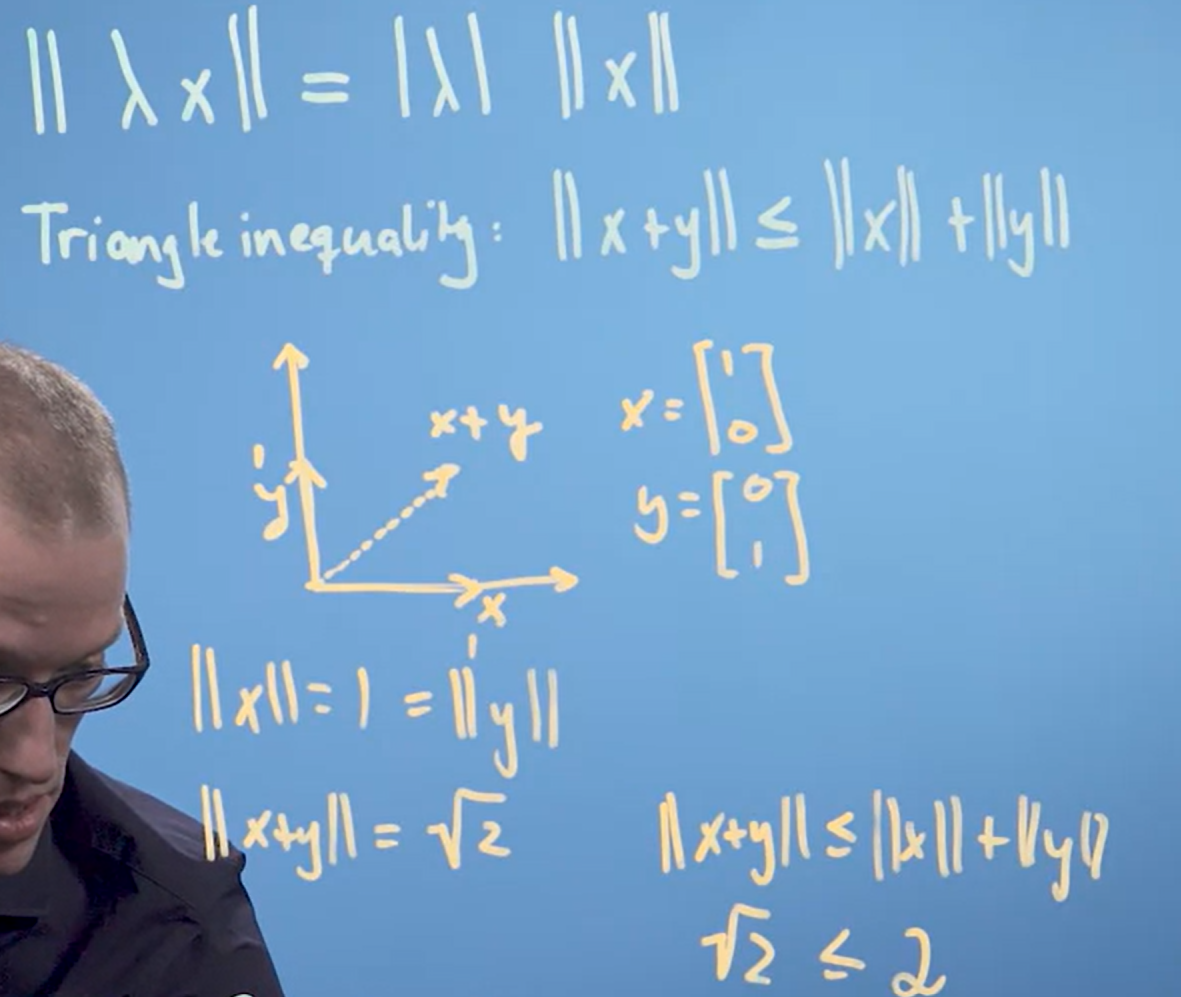 ‖ λ x ‖ = |λ| ‖ x ‖
Triangle inequality: ‖ x + y ‖ ≤ ‖x‖ + ‖y‖
x + y
1
y
x
1
x = [1 0]
y = [0 1]
‖ x ‖ = 1 = ‖ y ‖
‖ x+y ‖ = √2
‖ x+y ‖ ≤ ‖x‖ + ‖y‖
√2 ≤ 2